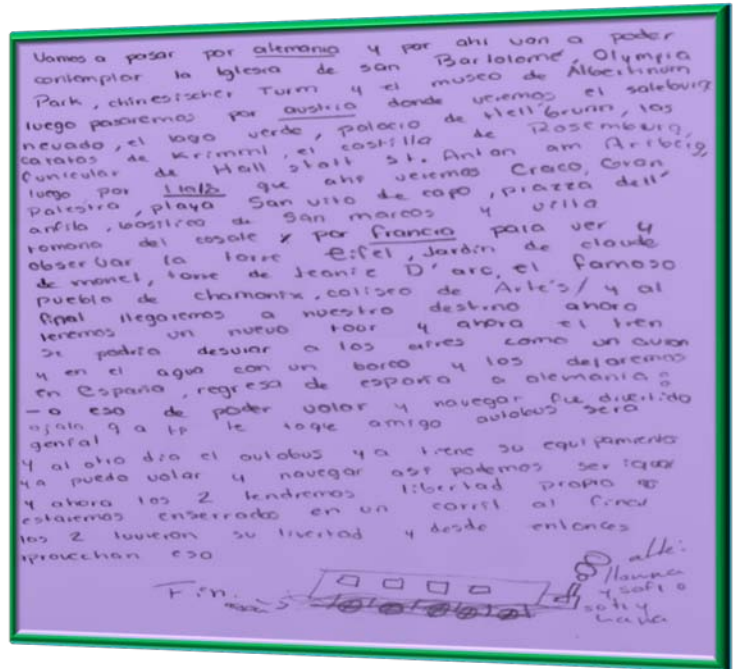 Vamos a pasar por alemania y por ahi van a poder
contemplar la Iglesia de san Bartolomé, Olympia
Park, chinesischer Turm y el museo de Albertinum
luego pasaremos por austria donde veremos el
nevado, el lago verde, palacio de Hell brunn, las
de Krimml, el castillo de Rosemburg,
Funicular de Hall statt St. Anton am Arlberg,
luego por que ahi veremos Craco, Gran
Palestra, playa San vito de capo, piazza dell'
anfila, basilica de San marcos y villa
romana del casale y por Francia para ver y
obserbar la torre Eifel, Jardin de claude
de monet, torre de Jeanie D'arc, el famoso
pueblo de chamonix, coliseo de Arte's/ y al
final llegaremos a nuestro destino ahora
tenemos un nuevo tour y ahora el tren
se podria desviar a los aires como un avion
y en el agua con un barco y los dejaremos
en España, regresa de españa a alemania:
- o eso de poder volar y navegar fue divertido
ojala q a tp le toque amigo autobus sera
genfial
y al otro dia el autobus ya tiene su equipamiento
ya puedo volar y navegar asi podemos ser igual
y ahora los 2 tendremos libertad propia
estaremos enserrados en un carril al final
los 2 tuvieron su livertad y desde entonces
aprovechan eso
Fin.
y sofi
sofi y